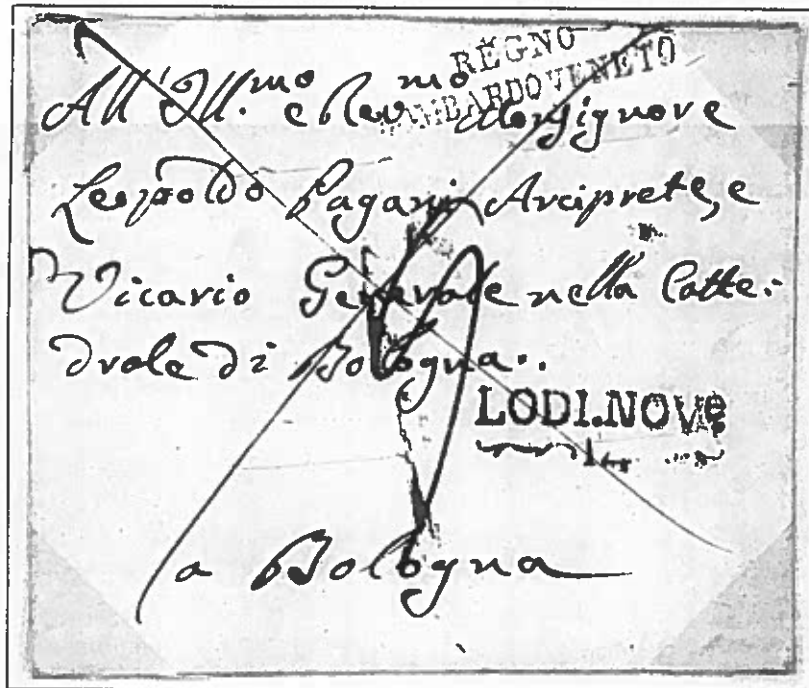 REGNO
LOMBARDOVENETO
All' Ill.mo e Rev.mo Monsignore
Leopoldo Pagani Arciprete, e
Vicario Generale nella Catte:
drale di Bologna.
LODI.NOVe
a Bologna